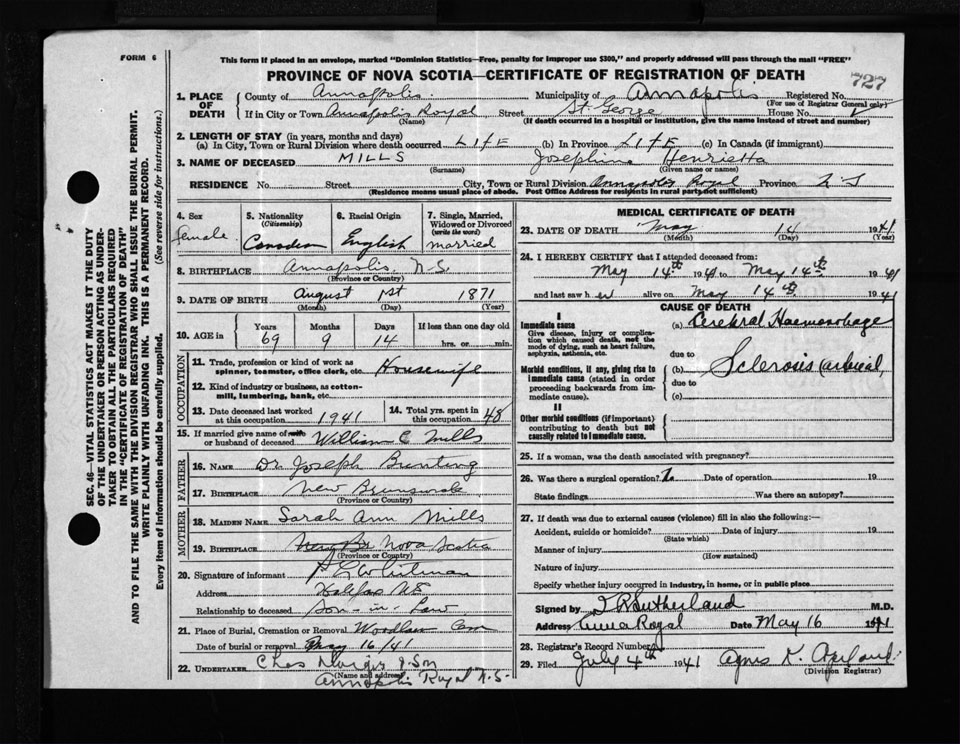 FORM 6
This form if placed in an envelope, marked "Dominion Statistics—Free, penalty for improper use $300," and properly addressed will pass through the mail "FREE"
PROVINCE OF NOVA SCOTIA—CERTIFICATE OF REGISTRATION OF DEATH
727
1. PLACE OF DEATH
County of Annapolis. Municipality of Annapolis Registered No.
(For use of Registrar General only)
If in City or Town Annapolis Royal Street St. George House No.
(Name) (If death occurred in a hospital or institution, give the name instead of street and number)
2. LENGTH OF STAY (in years, months and days)
(a) In City, Town or Rural Division where death occurred LIFE (b) In Province LIFE (c) In Canada (if immigrant)
3. NAME OF DECEASED MILLS Josephine Henrietta
(Surname) (Given name or names)
RESIDENCE No. Street City, Town or Rural Division Annapolis Royal Province N S
(Residence means usual place of abode. Post Office Address for residents in rural parts not sufficient)
SEC. 46—VITAL STATISTICS ACT MAKES IT THE DUTY
OF THE UNDERTAKER OR PERSON ACTING AS UNDER-
TAKER TO OBTAIN ALL THE PARTICULARS REQUIRED
IN THE "CERTIFICATE OF REGISTRATION OF DEATH"
AND TO FILE THE SAME WITH THE DIVISION REGISTRAR WHO SHALL ISSUE THE BURIAL PERMIT.
WRITE PLAINLY WITH UNFADING INK. THIS IS A PERMANENT RECORD.
Every item of Information should be carefully supplied. (See reverse side for instructions.)
4. Sex
female
5. Nationality
(Citizenship)
Canadian
6. Racial Origin
English
7. Single, Married,
Widowed or Divorced
(write the word)
married
8. BIRTHPLACE Annapolis, N.S.
(Province or Country)
9. DATE OF BIRTH August 1st 1871
(Month) (Day) (Year)
10. AGE in
Years Months Days If less than one day old
69 9 14 hrs. or min.
OCCUPATION
11. Trade, profession or kind of work as
spinner, teamster, office clerk, etc. Housewife
12. Kind of industry or business, as cotton-
mill, lumbering, bank, etc.
13. Date deceased last worked
at this occupation 1941
14. Total yrs. spent in
this occupation 48
15. If married give name of wife
or husband of deceased William C Mills
FATHER
16. NAME Dr. Joseph
17. BIRTHPLACE New Brunswick
(Province or Country)
MOTHER
18. MAIDEN NAME Sarah Ann Mills
19. BIRTHPLACE Nova Scotia
(Province or Country)
20. Signature of informant Whitman
Address Halifax
Relationship to deceased Son-in-Law
21. Place of Burial, Cremation or Removal Woodlawn Cem
Date of burial or removal May 16/41
22. UNDERTAKER Chas & Son
(Name and address)
Annapolis Royal N.S.
MEDICAL CERTIFICATE OF DEATH
23. DATE OF DEATH May 14 1941
(Month) (Day) (Year)
24. I HEREBY CERTIFY that I attended deceased from:
May 14th 1941 to May 14th 1941
and last saw her alive on May 14th 1941
CAUSE OF DEATH
I
Immediate cause
Give disease, injury or complica-
tion which caused death, not the
mode of dying, such as heart failure,
asphyxia, asthenia, etc.
(a) Cerebral Haemorrhage
due to
Morbid conditions, if any, giving rise to
immediate cause (stated in order
proceeding backwards from im-
mediate cause).
(b) Sclerosis
due to
(c)
II
Other morbid conditions (if important)
contributing to death but not
causally related to immediate cause.
25. If a woman, was the death associated with pregnancy?
26. Was there a surgical operation? Date of operation 19
State findings Was there an autopsy?
27. If death was due to external causes (violence) fill in also the following:—
Accident, suicide or homicide? Date of injury 19
(State which)
Manner of injury
(How sustained)
Nature of injury
Specify whether injury occurred in industry, in home, or in public place
Signed by Sutherland M.D.
Address Anna Royal Date May 16 1941
28. Registrar's Record Number
29. Filed July 4th 1941 Agnes K.
(Division Registrar)